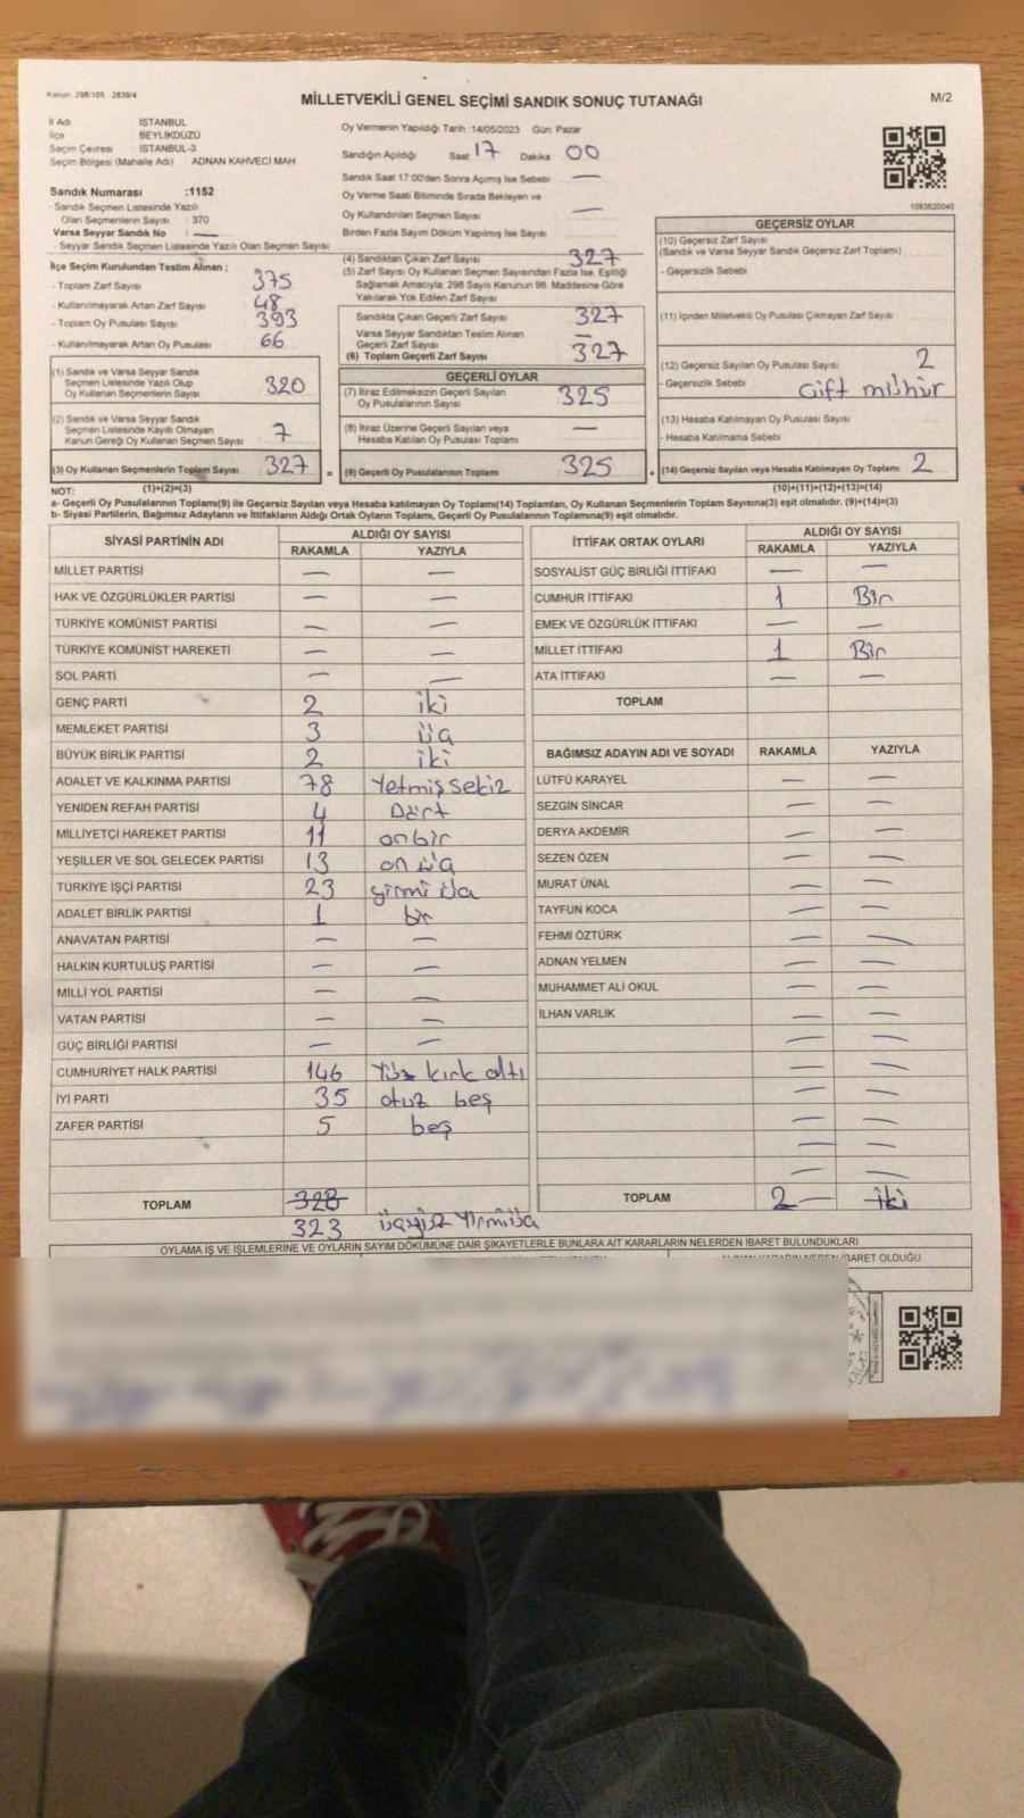 Kanun: 298/105 - 2839/4
MİLLETVEKİLİ GENEL SEÇİMİ SANDIK SONUÇ TUTANAĞI
M/2
İl Adı İSTANBUL
İlçe BEYLİKDÜZÜ
Seçim Çevresi İSTANBUL-3
Seçim Bölgesi (Mahalle Adı) ADNAN KAHVECİ MAH
Sandık Numarası :1152
- Sandık Seçmen Listesinde Yazılı
Olan Seçmenlerin Sayısı : 370
Varsa Seyyar Sandık No : —
- Seyyar Sandık Seçmen Listesinde Yazılı Olan Seçmen Sayısı
İlçe Seçim Kurulundan Teslim Alınan :
- Toplam Zarf Sayısı 375
- Kullanılmayarak Artan Zarf Sayısı 48
- Toplam Oy Pusulası Sayısı 393
- Kullanılmayarak Artan Oy Pusulası 66
(1) Sandık ve Varsa Seyyar Sandık
Seçmen Listesinde Yazılı Olup
Oy Kullanan Seçmenlerin Sayısı 320
(2) Sandık ve Varsa Seyyar Sandık
Seçmen Listesinde Kayıtlı Olmayan
Kanun Gereği Oy Kullanan Seçmen Sayısı 7
(3) Oy Kullanan Seçmenlerin Toplam Sayısı 327
(1)+(2)=(3)
Oy Vermenin Yapıldığı Tarih :14/05/2023 Gün: Pazar
Sandığın Açıldığı Saat 17 Dakika 00
Sandık Saat 17:00'den Sonra Açılmış İse Sebebi —
Oy Verme Saati Bitiminde Sırada Bekleyen ve
Oy Kullandırılan Seçmen Sayısı —
Birden Fazla Sayım Döküm Yapılmış İse Sayısı
(4) Sandıktan Çıkan Zarf Sayısı 327
(5) Zarf Sayısı Oy Kullanan Seçmen Sayısından Fazla İse, Eşitliği
Sağlamak Amacıyla; 298 Sayılı Kanunun 98. Maddesine Göre
Yakılarak Yok Edilen Zarf Sayısı
Sandıkta Çıkan Geçerli Zarf Sayısı 327
Varsa Seyyar Sandıktan Teslim Alınan
Geçerli Zarf Sayısı —
(6) Toplam Geçerli Zarf Sayısı 327
GEÇERLİ OYLAR
(7) İtiraz Edilmeksizin Geçerli Sayılan
Oy Pusulalarının Sayısı 325
(8) İtiraz Üzerine Geçerli Sayılan veya
Hesaba Katılan Oy Pusulası Toplamı —
= (9) Geçerli Oy Pusulalarının Toplamı 325
1093620040
GEÇERSİZ OYLAR
(10) Geçersiz Zarf Sayısı
(Sandık ve Varsa Seyyar Sandık Geçersiz Zarf Toplamı)
- Geçersizlik Sebebi
(11) İçinden Milletvekili Oy Pusulası Çıkmayan Zarf Sayısı
(12) Geçersiz Sayılan Oy Pusulası Sayısı 2
- Geçersizlik Sebebi Çift mühür
(13) Hesaba Katılmayan Oy Pusulası Sayısı
- Hesaba Katılmama Sebebi
+ (14) Geçersiz Sayılan veya Hesaba Katılmayan Oy Toplamı 2
(10)+(11)+(12)+(13)=(14)
NOT:
a- Geçerli Oy Pusulalarının Toplamı(9) ile Geçersiz Sayılan veya Hesaba katılmayan Oy Toplamı(14) Toplamları, Oy Kullanan Seçmenlerin Toplam Sayısına(3) eşit olmalıdır. (9)+(14)=(3)
b- Siyasi Partilerin, Bağımsız Adayların ve İttifakların Aldığı Ortak Oyların Toplamı, Geçerli Oy Pusulalarının Toplamına(9) eşit olmalıdır.
SİYASİ PARTİNİN ADI
ALDIĞI OY SAYISI
RAKAMLA YAZIYLA
MİLLET PARTİSİ — —
HAK VE ÖZGÜRLÜKLER PARTİSİ — —
TÜRKİYE KOMÜNİST PARTİSİ — —
TÜRKİYE KOMÜNİST HAREKETİ — —
SOL PARTİ — —
GENÇ PARTİ 2 iki
MEMLEKET PARTİSİ 3 üç
BÜYÜK BİRLİK PARTİSİ 2 iki
ADALET VE KALKINMA PARTİSİ 78 Yetmiş sekiz
YENİDEN REFAH PARTİSİ 4 Dört
MİLLİYETÇİ HAREKET PARTİSİ 11 onbir
YEŞİLLER VE SOL GELECEK PARTİSİ 13 on üç
TÜRKİYE İŞÇİ PARTİSİ 23 yirmi üç
ADALET BİRLİK PARTİSİ 1 bir
ANAVATAN PARTİSİ — —
HALKIN KURTULUŞ PARTİSİ — —
MİLLİ YOL PARTİSİ — —
VATAN PARTİSİ — —
GÜÇ BİRLİĞİ PARTİSİ — —
CUMHURİYET HALK PARTİSİ 146 Yüz kırk altı
İYİ PARTİ 35 otuz beş
ZAFER PARTİSİ 5 beş
TOPLAM 328
323 üçyüz yirmi üç
İTTİFAK ORTAK OYLARI
ALDIĞI OY SAYISI
RAKAMLA YAZIYLA
SOSYALİST GÜÇ BİRLİĞİ İTTİFAKI — —
CUMHUR İTTİFAKI 1 Bir
EMEK VE ÖZGÜRLÜK İTTİFAKI — —
MİLLET İTTİFAKI 1 Bir
ATA İTTİFAKI — —
TOPLAM
BAĞIMSIZ ADAYIN ADI VE SOYADI RAKAMLA YAZIYLA
LÜTFÜ KARAYEL — —
SEZGİN SİNCAR — —
DERYA AKDEMİR — —
SEZEN ÖZEN — —
MURAT ÜNAL — —
TAYFUN KOCA — —
FEHMİ ÖZTÜRK — —
ADNAN YELMEN — —
MUHAMMET ALİ OKUL — —
İLHAN VARLIK — —
TOPLAM 2 — iki
OYLAMA İŞ VE İŞLEMLERİNE VE OYLARIN SAYIM DÖKÜMÜNE DAİR ŞİKAYETLERLE BUNLARA AİT KARARLARIN NELERDEN İBARET BULUNDUKLARI
İBARET OLDUĞU